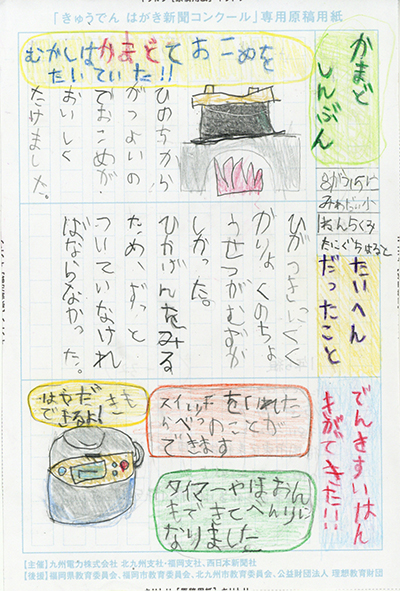 「きゅうでん はがき新聞コンクール」専用原稿用紙
かまど
しんぶん
8がつ15に
みわだい小
ねんらくみ
たにぐちはると
むかしはかまどでおこめを
たいていた!!
ひのちから
がつよいの
でおこめが
おいしく
たけました。
たいへん
だったこと
ひがつきにくく
かりょくのちょ
うせつがむずか
しかった。
ひかげんをみる
ため、ずっと
ついていなけれ
ばならなかった。
でんきすいはん
きができた!!
はやだきも
できるよ!
スイッチをいれた
らべつのことが
できます
タイマーやほおん
もできてべんりに
なりました
【主催】九州電力株式会社 北九州支社・福岡支社、西日本新聞社
【後援】福岡県教育委員会、福岡市教育委員会、北九州市教育委員会、公益財団法人 理想教育財団